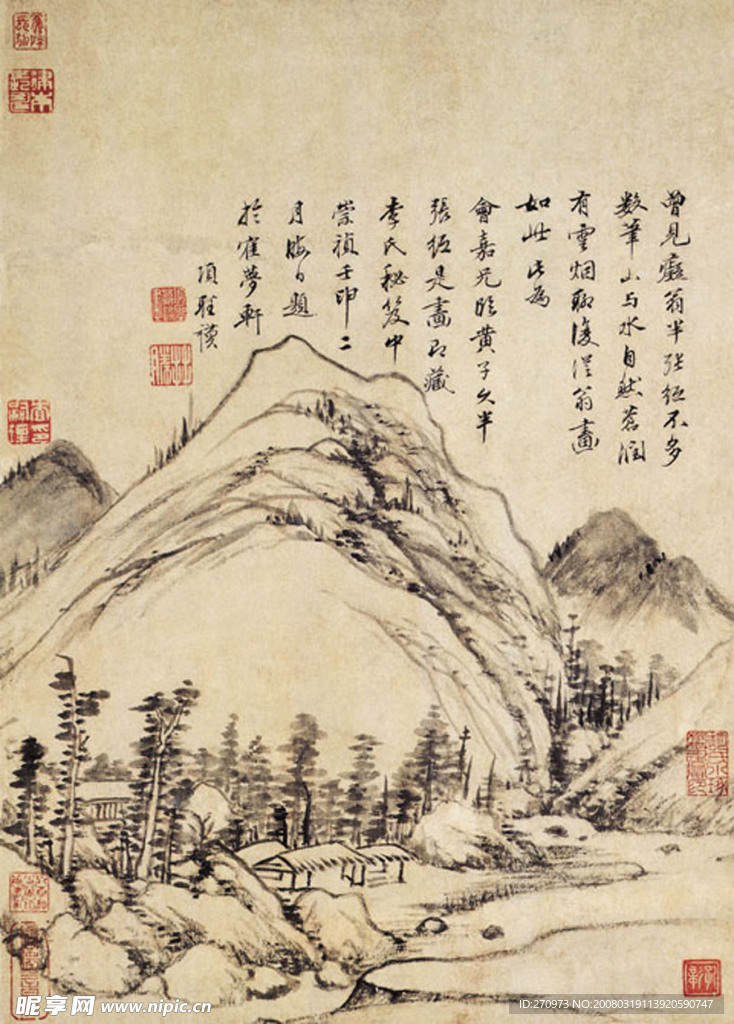 曾見癡翁半張紙不多
数筆山与水自然蒼潤
有雲烟聊復從翁畫
如此此為
會嘉兄臨黄子久半
張紙是畫已藏
李氏秘笈中
崇禎壬申二
月晦日題
於寉夢軒
項聖謨
昵享网 www.nipic.cn
ID:270973 NO:20080319113920590747